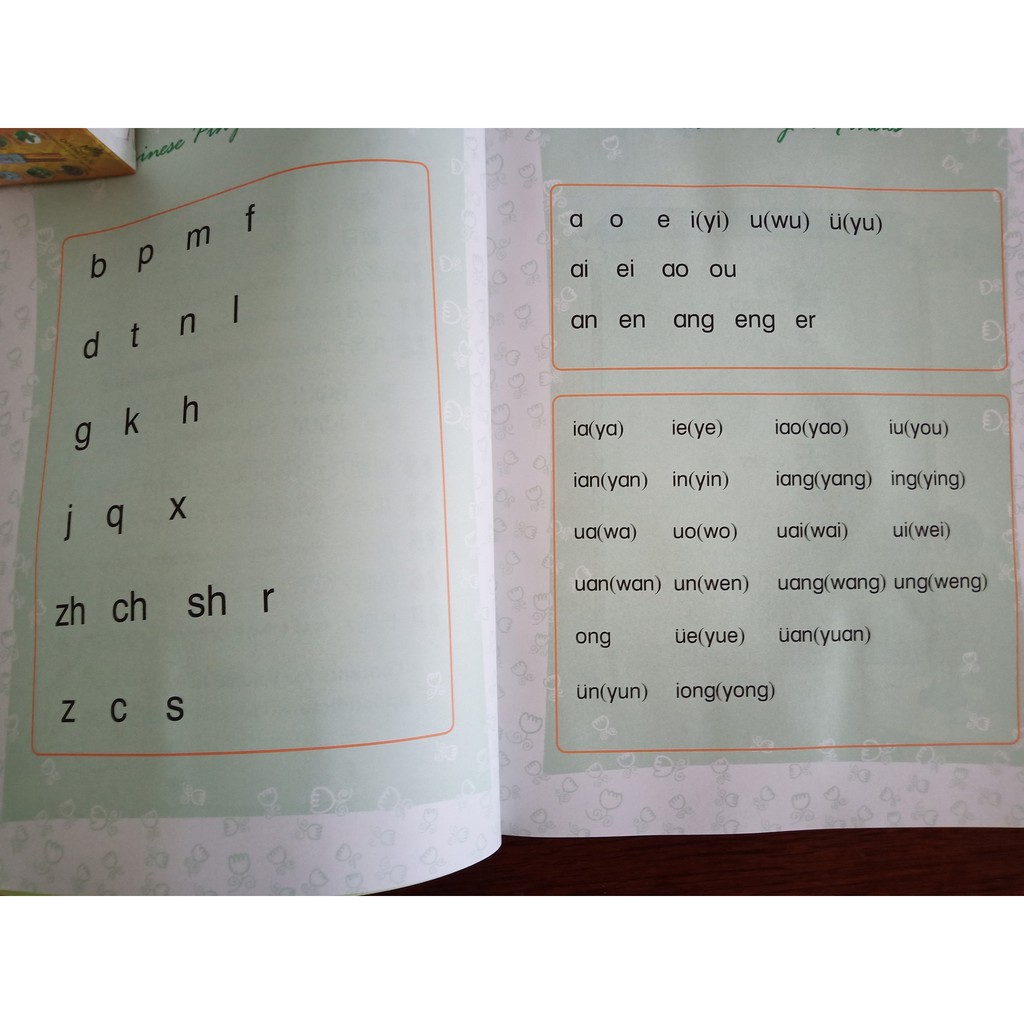 b p m f
d t n l
g k h
j q x
zh ch sh r
z c s
a o e i(yi) u(wu) ü(yu)
ai ei ao ou
an en ang eng er
ia(ya) ie(ye) iao(yao) iu(you)
ian(yan) in(yin) iang(yang) ing(ying)
ua(wa) uo(wo) uai(wai) ui(wei)
uan(wan) un(wen) uang(wang) ung(weng)
ong üe(yue) üan(yuan)
ün(yun) iong(yong)